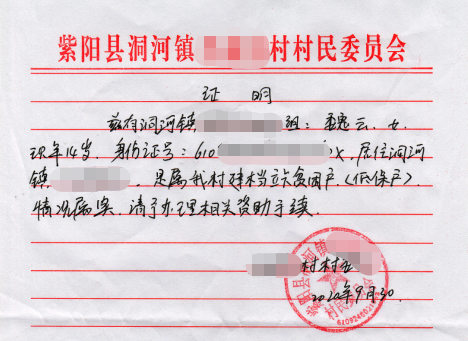 紫阳县洞河镇 村村民委员会
证 明
兹有洞河镇 组:魏云,女,
现年14岁,身份证号:610 X,居住洞河
镇 ,是属我村建档立卡贫困户(低保户),
情况属实,请予办理相关资助手续。
村村委
2020年9月30.
紫阳县洞河镇
村民委员会